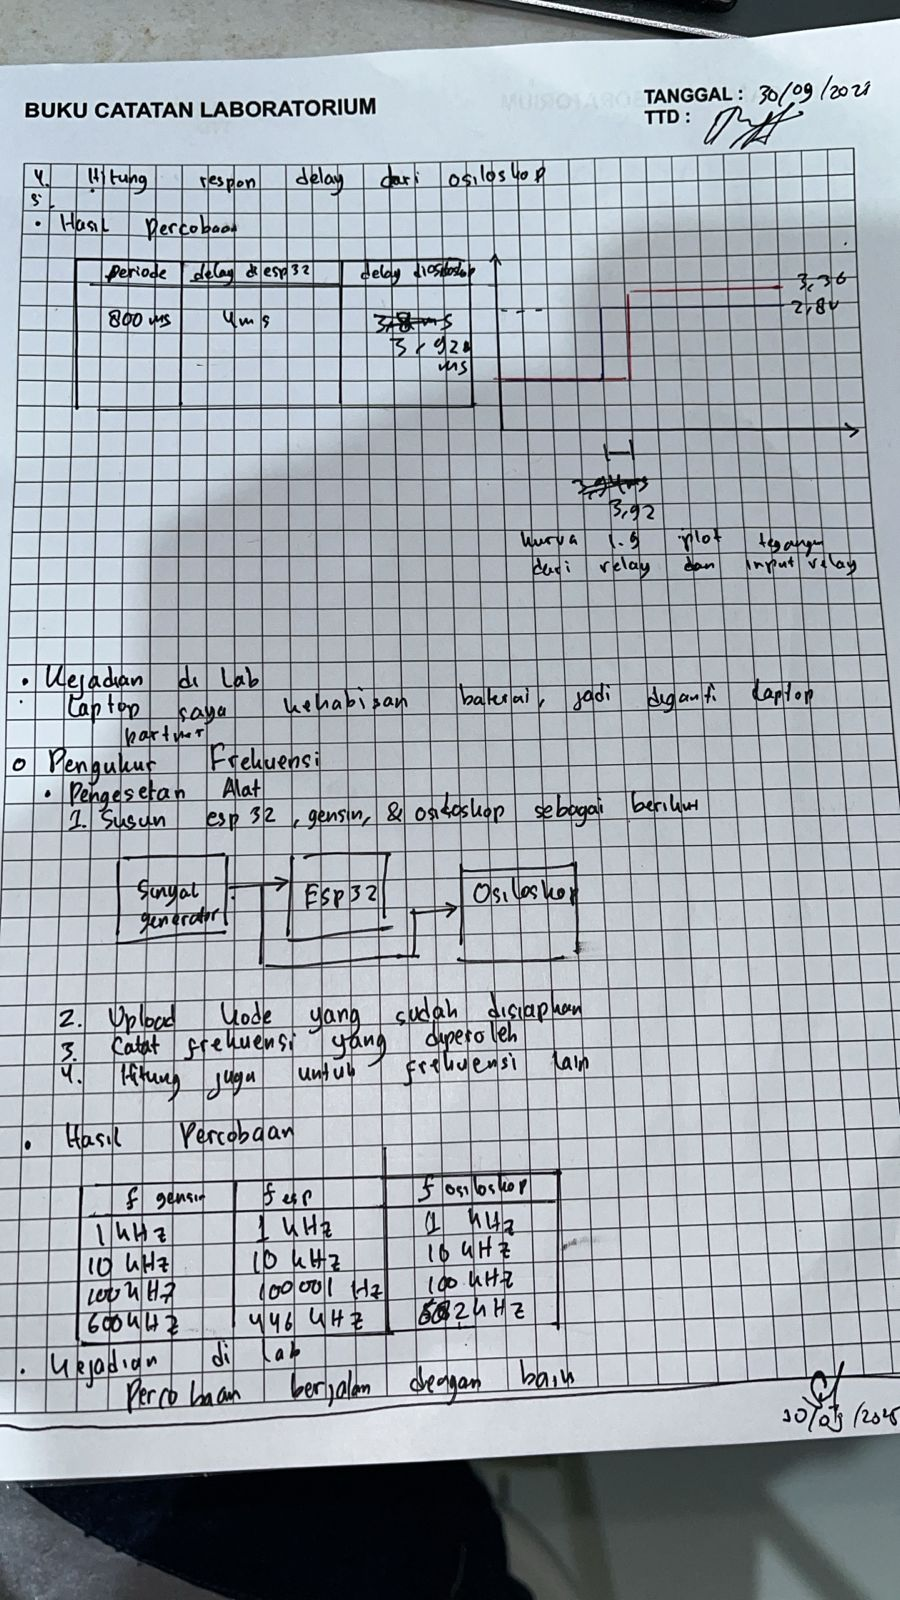 BUKU CATATAN LABORATORIUM
TANGGAL : 30/09/2025
TTD :
4. Hitung respon delay dari osiloskop
5.
• Hasil Percobaan
periode delay di esp32 delay diosiloskop
800 ms 4ms 3,8 ms
3,920
ms
3,36
2,84
3,94ms
3,92
kurva 1.9 plot tegangan
dari relay dan input relay
• Kejadian di Lab
Laptop saya kehabisan baterai, jadi diganti laptop
partner
o Pengukur Frekuensi
• Pengesetan Alat
1. Susun esp 32, gensin, & osiloskop sebagai berikut
Sinyal
generator
Esp32
Osiloskop
2. Upload kode yang sudah disiapkan
3. Catat frekuensi yang diperoleh
4. Hitung juga untuk frekuensi lain
• Hasil Percobaan
f gensin f esp f osiloskop
1 kHz 1 kHz 1 kHz
10 kHz 10 kHz 10 kHz
100 kHz 100001 Hz 100 kHz
600 kHz 446 kHz kHz
• Kejadian di lab
Percobaan berjalan dengan baik
30/09/2025